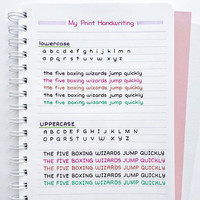 My Print Handwriting
lowercase
a b c d e f g h i j k l m n
o p q r s t u v w x y z
the five boxing wizards jump quickly
the five boxing wizards jump quickly
the five boxing wizards jump quickly
the five boxing wizards jump quickly
the five boxing wizards jump quickly
UPPERCASE
A B C D E F G H I J K L M N
O P Q R S T U V W X Y Z
THE FIVE BOXING WIZARDS JUMP QUICKLY
THE FIVE BOXING WIZARDS JUMP QUICKLY
THE FIVE BOXING WIZARDS JUMP QUICKLY
THE FIVE BOXING WIZARDS JUMP QUICKLY
THE FIVE BOXING WIZARDS JUMP QUICKLY